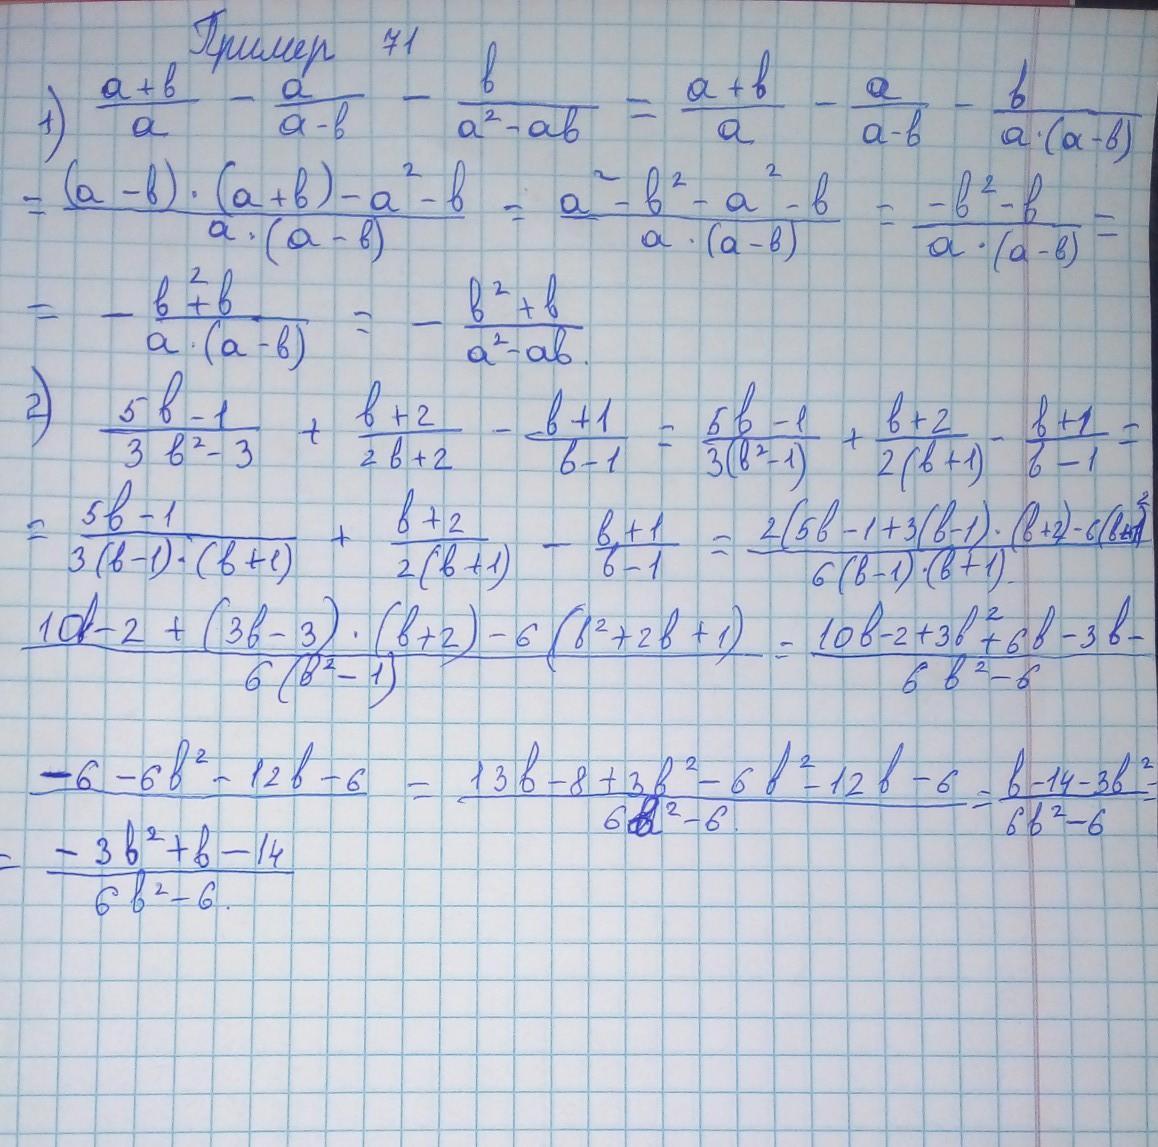 Пример 71
1) (a+b)/a - a/(a-b) - b/(a²-ab) = (a+b)/a - a/(a-b) - b/(a·(a-b))
= ((a-b)·(a+b)-a²-b)/(a·(a-b)) = (a²-b²-a²-b)/(a·(a-b)) = (-b²-b)/(a·(a-b)) =
= - (b²+b)/(a·(a-b)) = - (b²+b)/(a²-ab).
2) (5b-1)/(3b²-3) + (b+2)/(2b+2) - (b+1)/(b-1) = (5b-1)/(3(b²-1)) + (b+2)/(2(b+1)) - (b+1)/(b-1) =
= (5b-1)/(3(b-1)·(b+1)) + (b+2)/(2(b+1)) - (b+1)/(b-1) = (2(5b-1+3(b-1)·(b+2)-6(b+1)²)/(6(b-1)·(b+1)).
(10b-2+(3b-3)·(b+2)-6(b²+2b+1))/(6(b²-1)) = (10b-2+3b²+6b-3b-)/(6b²-6)
-6-6b²-12b-6 = (13b-8+3b²-6b²-12b-6)/(6b²-6.) = (b-14-3b²)/(6b²-6) =
= (-3b²+b-14)/(6b²-6.)